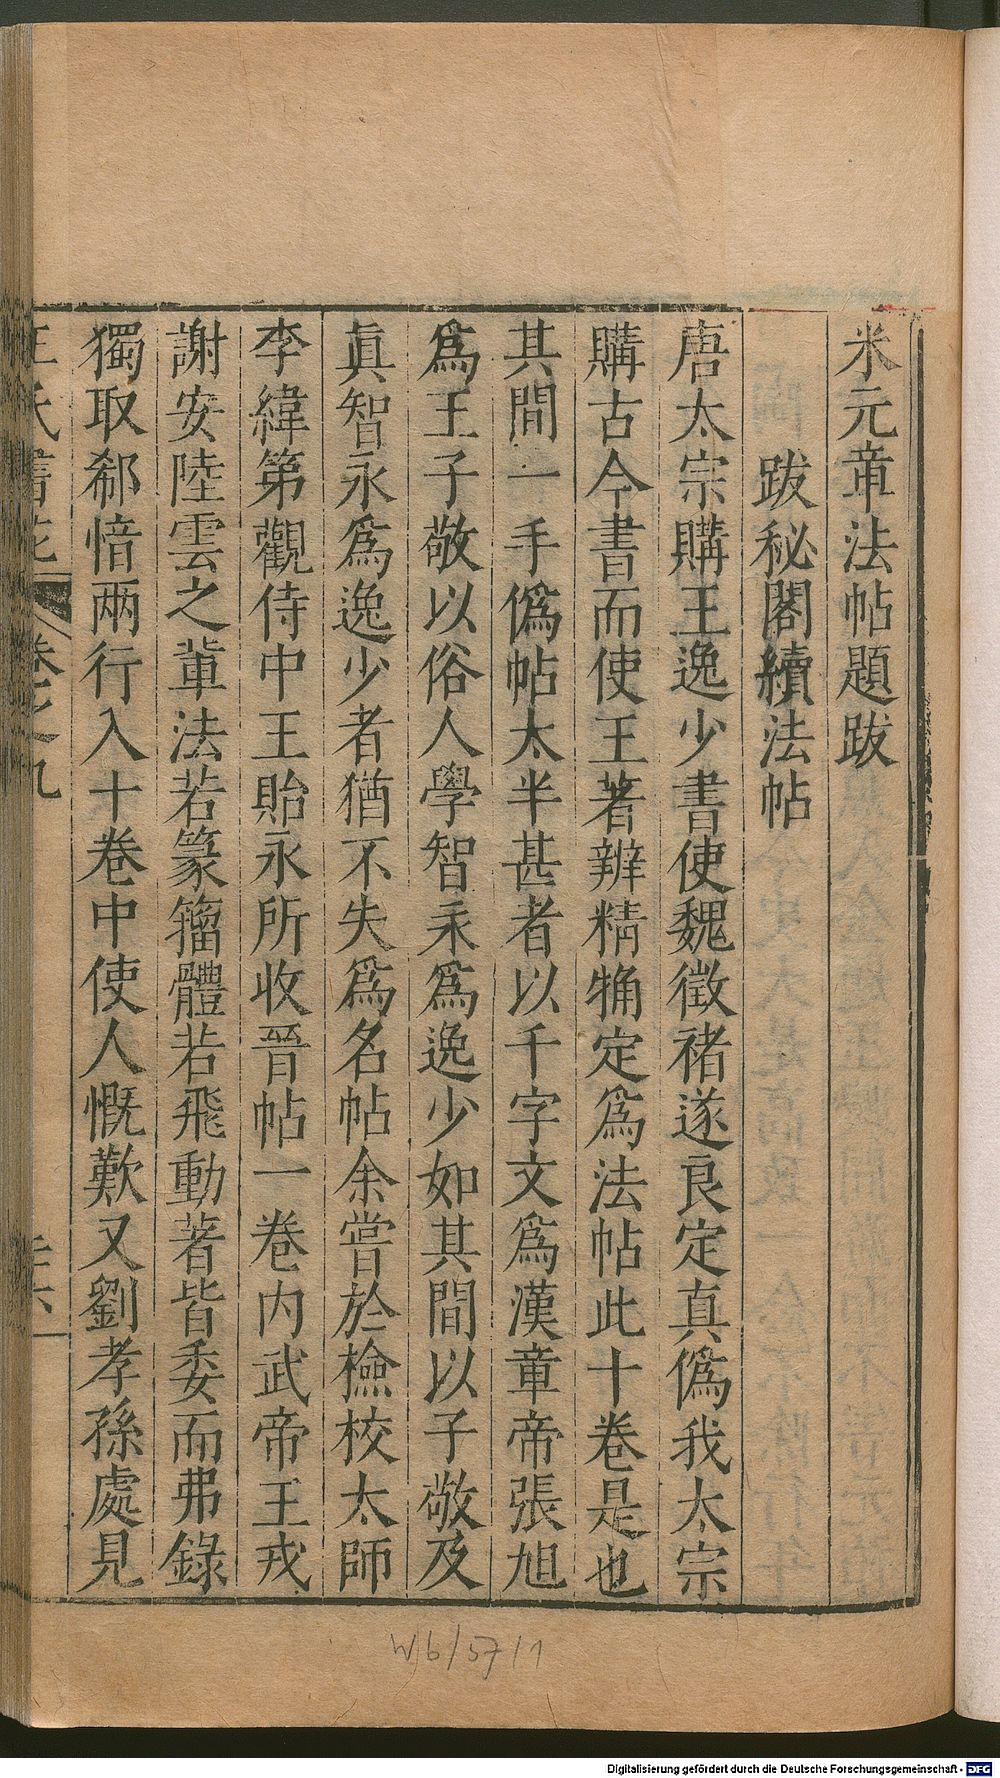 米元章法帖題跋
跋秘閣續法帖
唐太宗購王逸少書使魏徵褚遂良定真僞我太宗
購古今書而使王著辨精觕定爲法帖此十卷是也
其間一手僞帖太半甚者以千字文爲漢章帝張旭
爲王子敬以俗人學智永爲逸少如其間以子敬及
眞智永爲逸少者猶不失爲名帖余嘗於檢校太師
李緯第觀侍中王貽永所收晉帖一卷内武帝王戎
謝安陸雲之輩法若篆籀體若飛動著皆委而弗錄
獨取郗愔兩行入十卷中使人慨歎又劉孝孫處見
王氏書苑
卷之九
W6/57/1
Digitalisierung gefördert durch die Deutsche Forschungsgemeinschaft - DFG